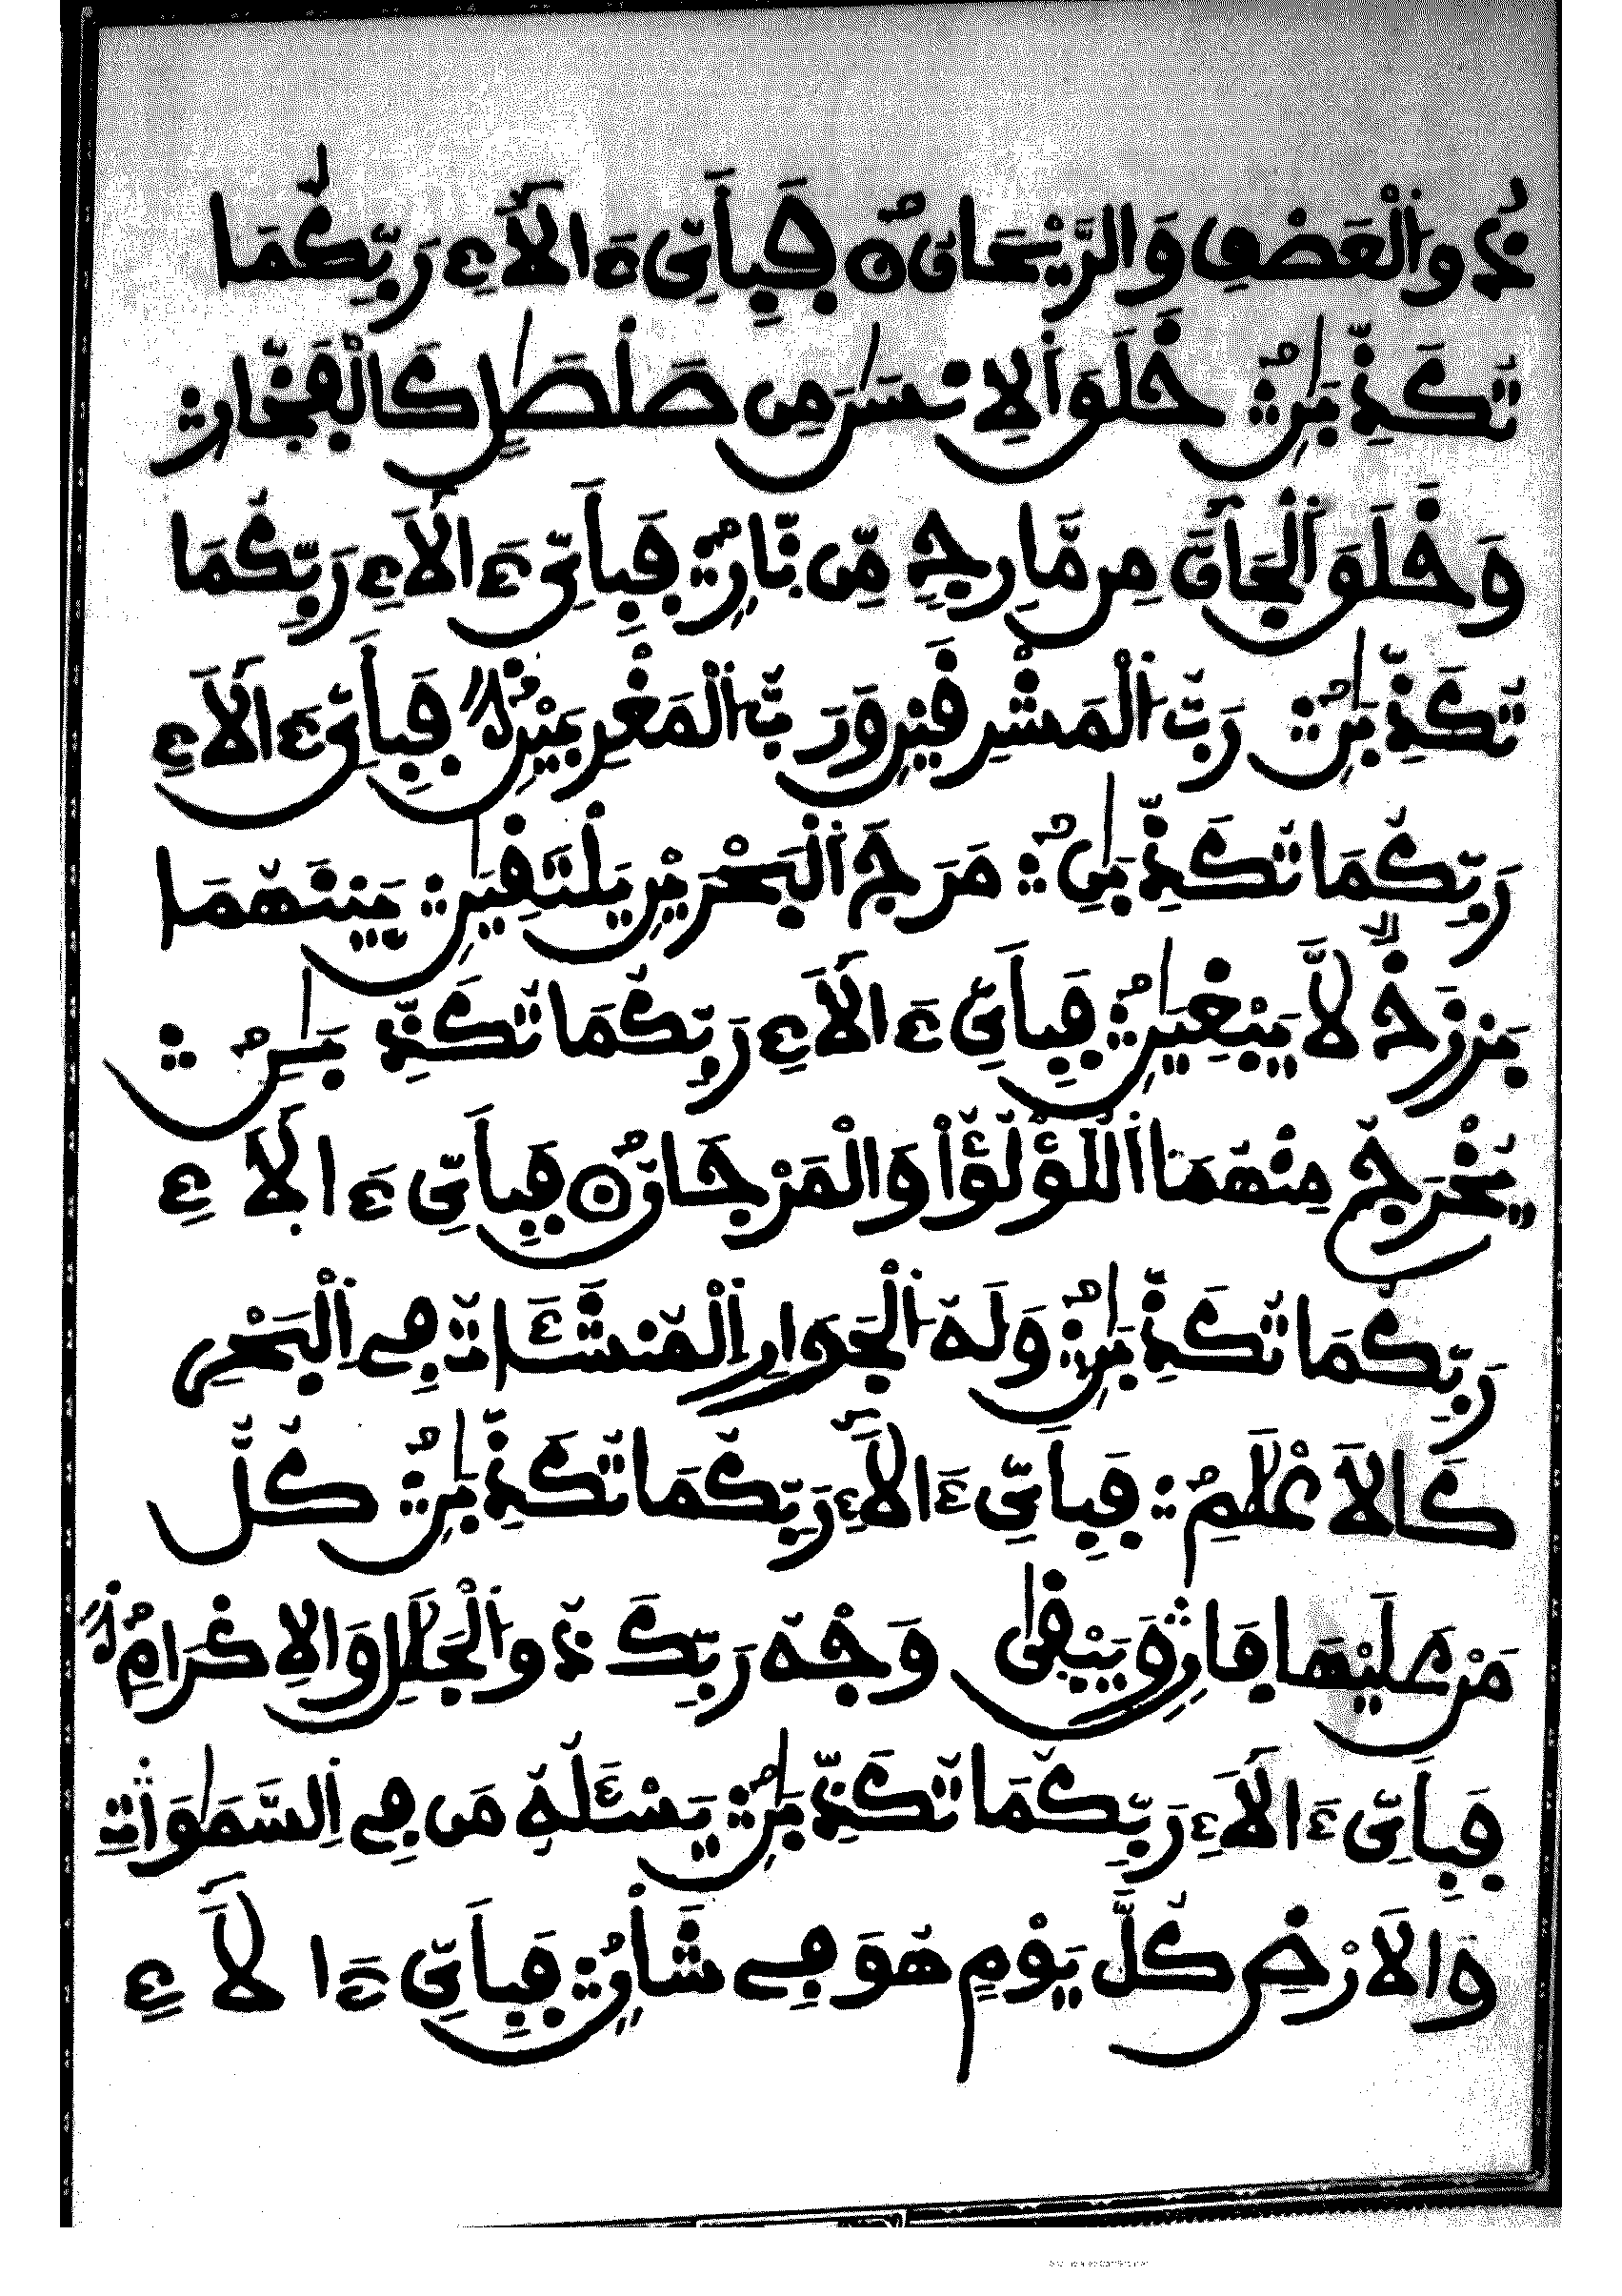 ذُو اَ۬لْعَصْفِ وَالرَّيْحَانُ فَبِأَيِّ ءَالَآءِ رَبِّكُمَا
تُكَذِّبَٰنِ خَلَقَ اَ۬لِانسَٰنَ مِن صَلْصَٰلٖ كَالْفَخّ۪ارِ
وَخَلَقَ اَ۬لْجَآنَّ مِن مَّارِجٖ مِّن نّ۪ارٖ فَبِأَيِّ ءَالَآءِ رَبِّكُمَا
تُكَذِّبَٰنِ رَبُّ اُ۬لْمَشْرِقَيْنِ وَرَبُّ اُ۬لْمَغْرِبَيْنِ فَبِأَيِّ ءَالَآءِ
رَبِّكُمَا تُكَذِّبَٰنِ مَرَجَ اَ۬لْبَحْرَيْنِ يَلْتَقِيَٰنِ بَيْنَهُمَا
بَرْزَخٞ لَّا يَبْغِيَٰنِ فَبِأَيِّ ءَالَآءِ رَبِّكُمَا تُكَذِّبَٰنِ
يُخْرَجُ مِنْهُمَا اَ۬للُّؤْلُؤُاْ وَالْمَرْجَانُ فَبِأَيِّ ءَالَآءِ
رَبِّكُمَا تُكَذِّبَٰنِ وَلَهُ اُ۬لْجَوَارِ اِ۬لْمُنشَـَٔاتُ فِے اِ۬لْبَحْرِ
كَالَاعْلَٰمِ فَبِأَيِّ ءَالَآءِ رَبِّكُمَا تُكَذِّبَٰنِ كُلُّ
مَنْ عَلَيْهَا فَانٖ وَيَبْقَىٰ وَجْهُ رَبِّكَ ذُو اُ۬لْجَلَٰلِ وَالِاكْرَامِ
فَبِأَيِّ ءَالَآءِ رَبِّكُمَا تُكَذِّبَٰنِ يَسْـَٔلُهُۥ مَن فِے اِ۬لسَّمَٰوَٰتِ
وَالَارْضِ كُلَّ يَوْمٍ هُوَ فِے شَأْنٖ فَبِأَيِّ ءَالَآءِ